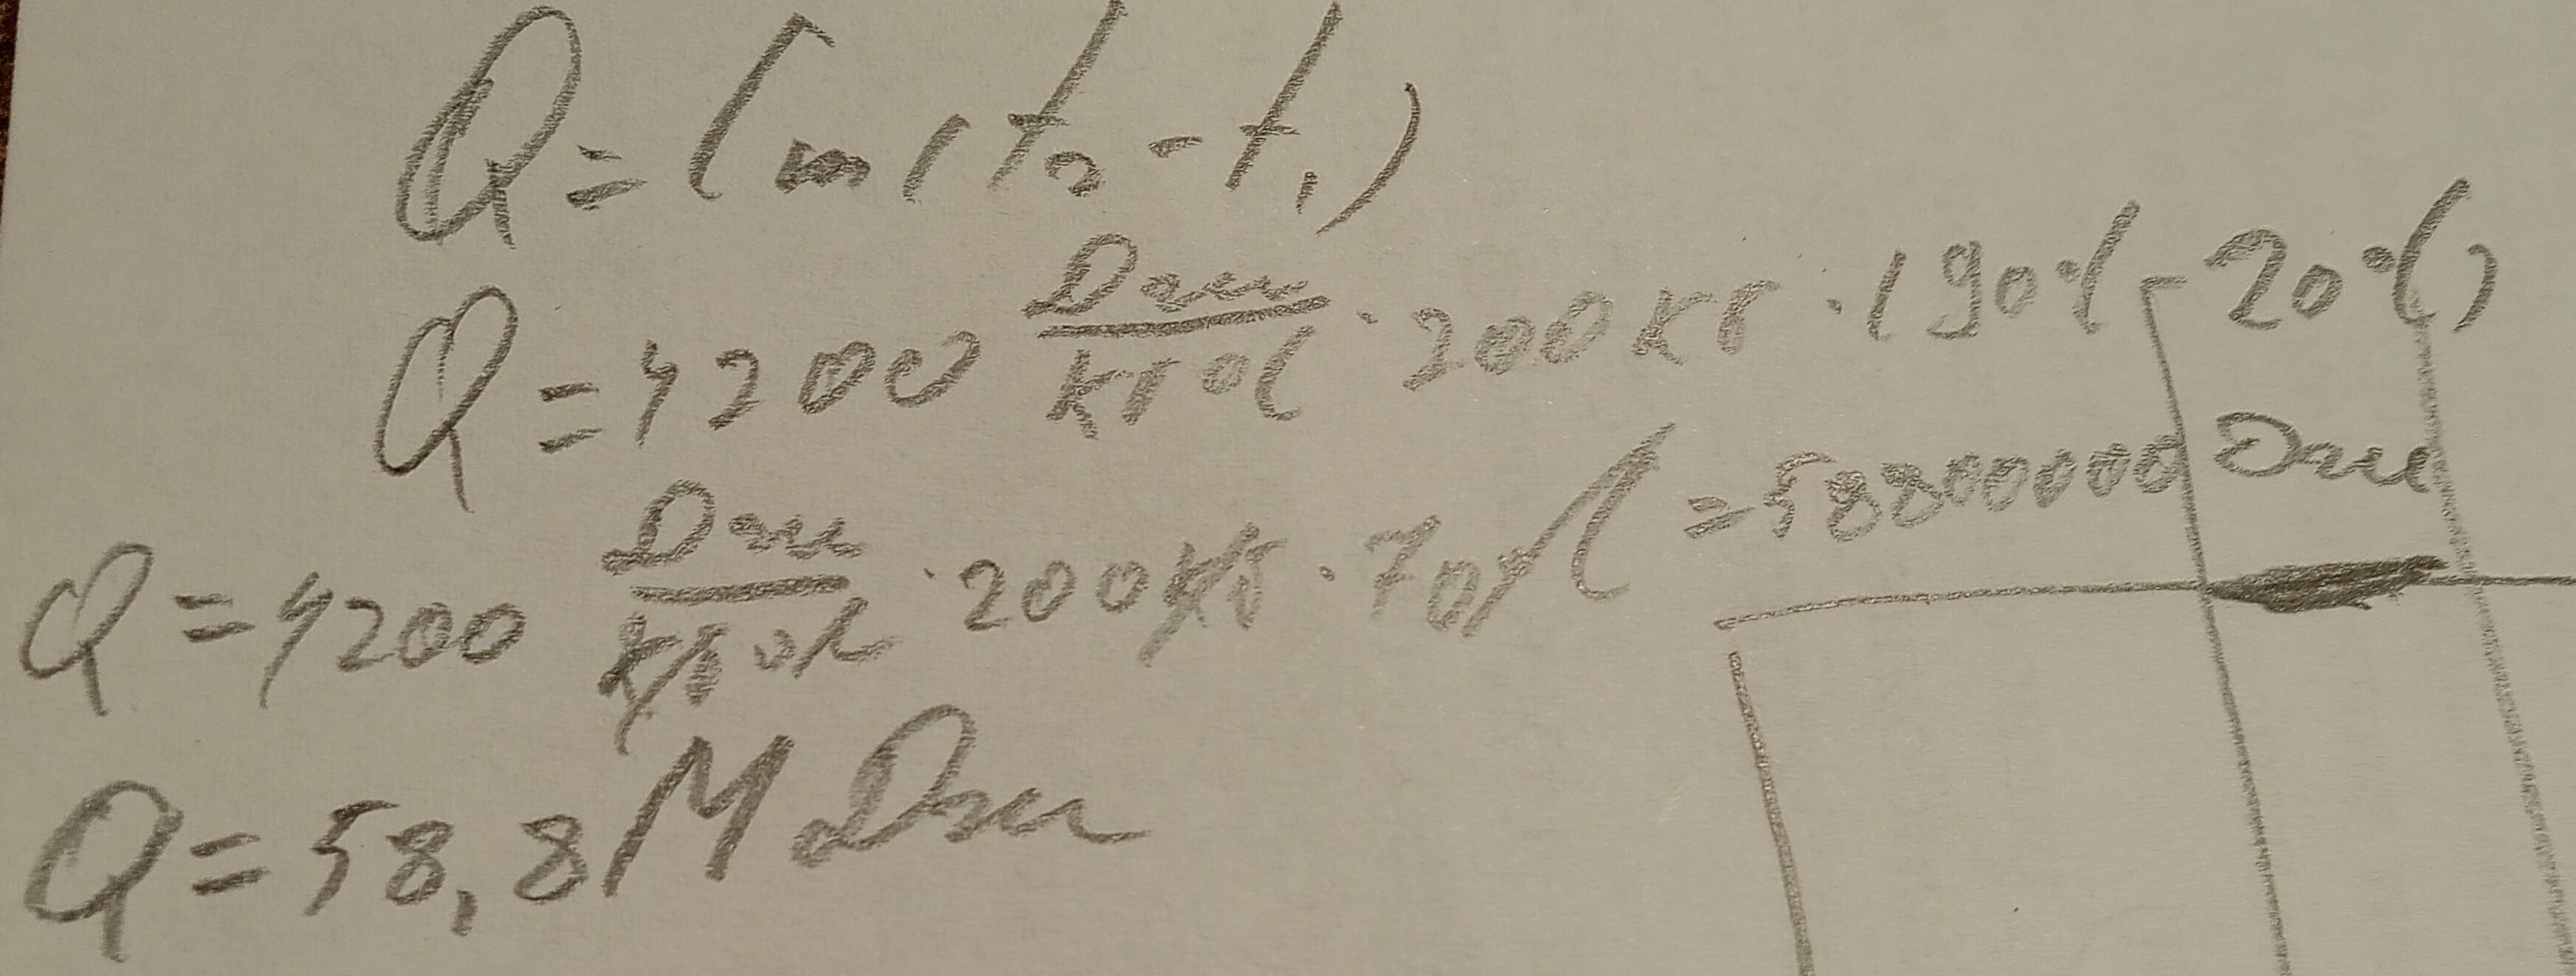 Q = Cm(t₂ - t₁)
Q = 4200 Дж/кг°C · 200кг · (90°C - 20°C)
Q = 4200 Дж/кг°C · 200кг · 70°C = 58800000 Дж
Q = 58,8 МДж